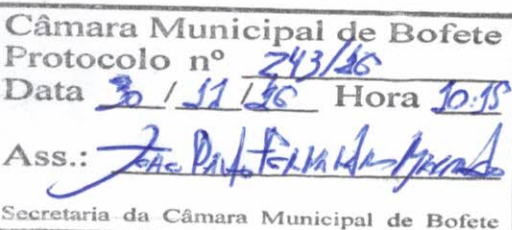 Câmara Municipal de Bofete
Protocolo nº 243/16
Data 30/11/16 Hora 10:15
Ass.: João Paulo Fernandes
Secretaria da Câmara Municipal de Bofete